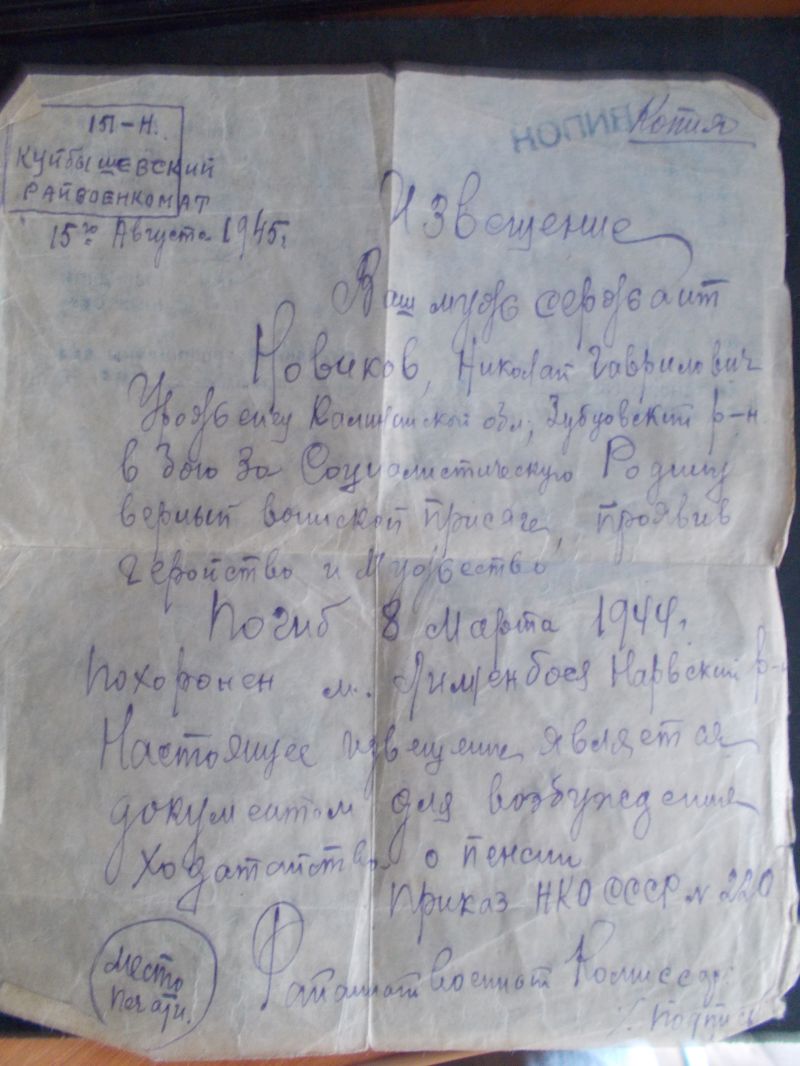 1П-Н.
КУЙБЫШЕВСКИЙ
РАЙВОЕНКОМАТ
15го Августа 1945г
КОПИЯ
Копия
Извещение
Ваш муж сержант
Новиков, Николай Гаврилович
Урожениц Калининской обл, Зубцовский р-н
в бою за Социалистическую Родину
верный воинской присяге, проявив
геройство и Мужество
Погиб 8 Марта 1944г.
Похоронен м. Лименбося Нарвский р-н
Настоящее извещение является
документом для возбуждения
ходатайства о пенсии
Приказ НКО СССР N 220
Место
Печати.
Военный Комиссар
Подпись